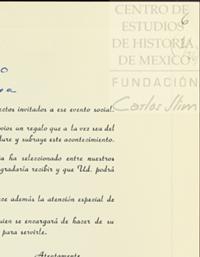 CENTRO DE
ESTUDIOS
DE HISTORIA
DE MEXICO
FUNDACIÓN
Carlos Slim
6
o
a
ectos invitados a ese evento social.
vios un regalo que a la vez sea del
dure y subraye este acontecimiento.
ia ha seleccionado entre nuestros
gradaría recibir y que Ud. podrá
ece además la atención especial de
uien se encargará de hacer de su
para servirle.
Atentamente